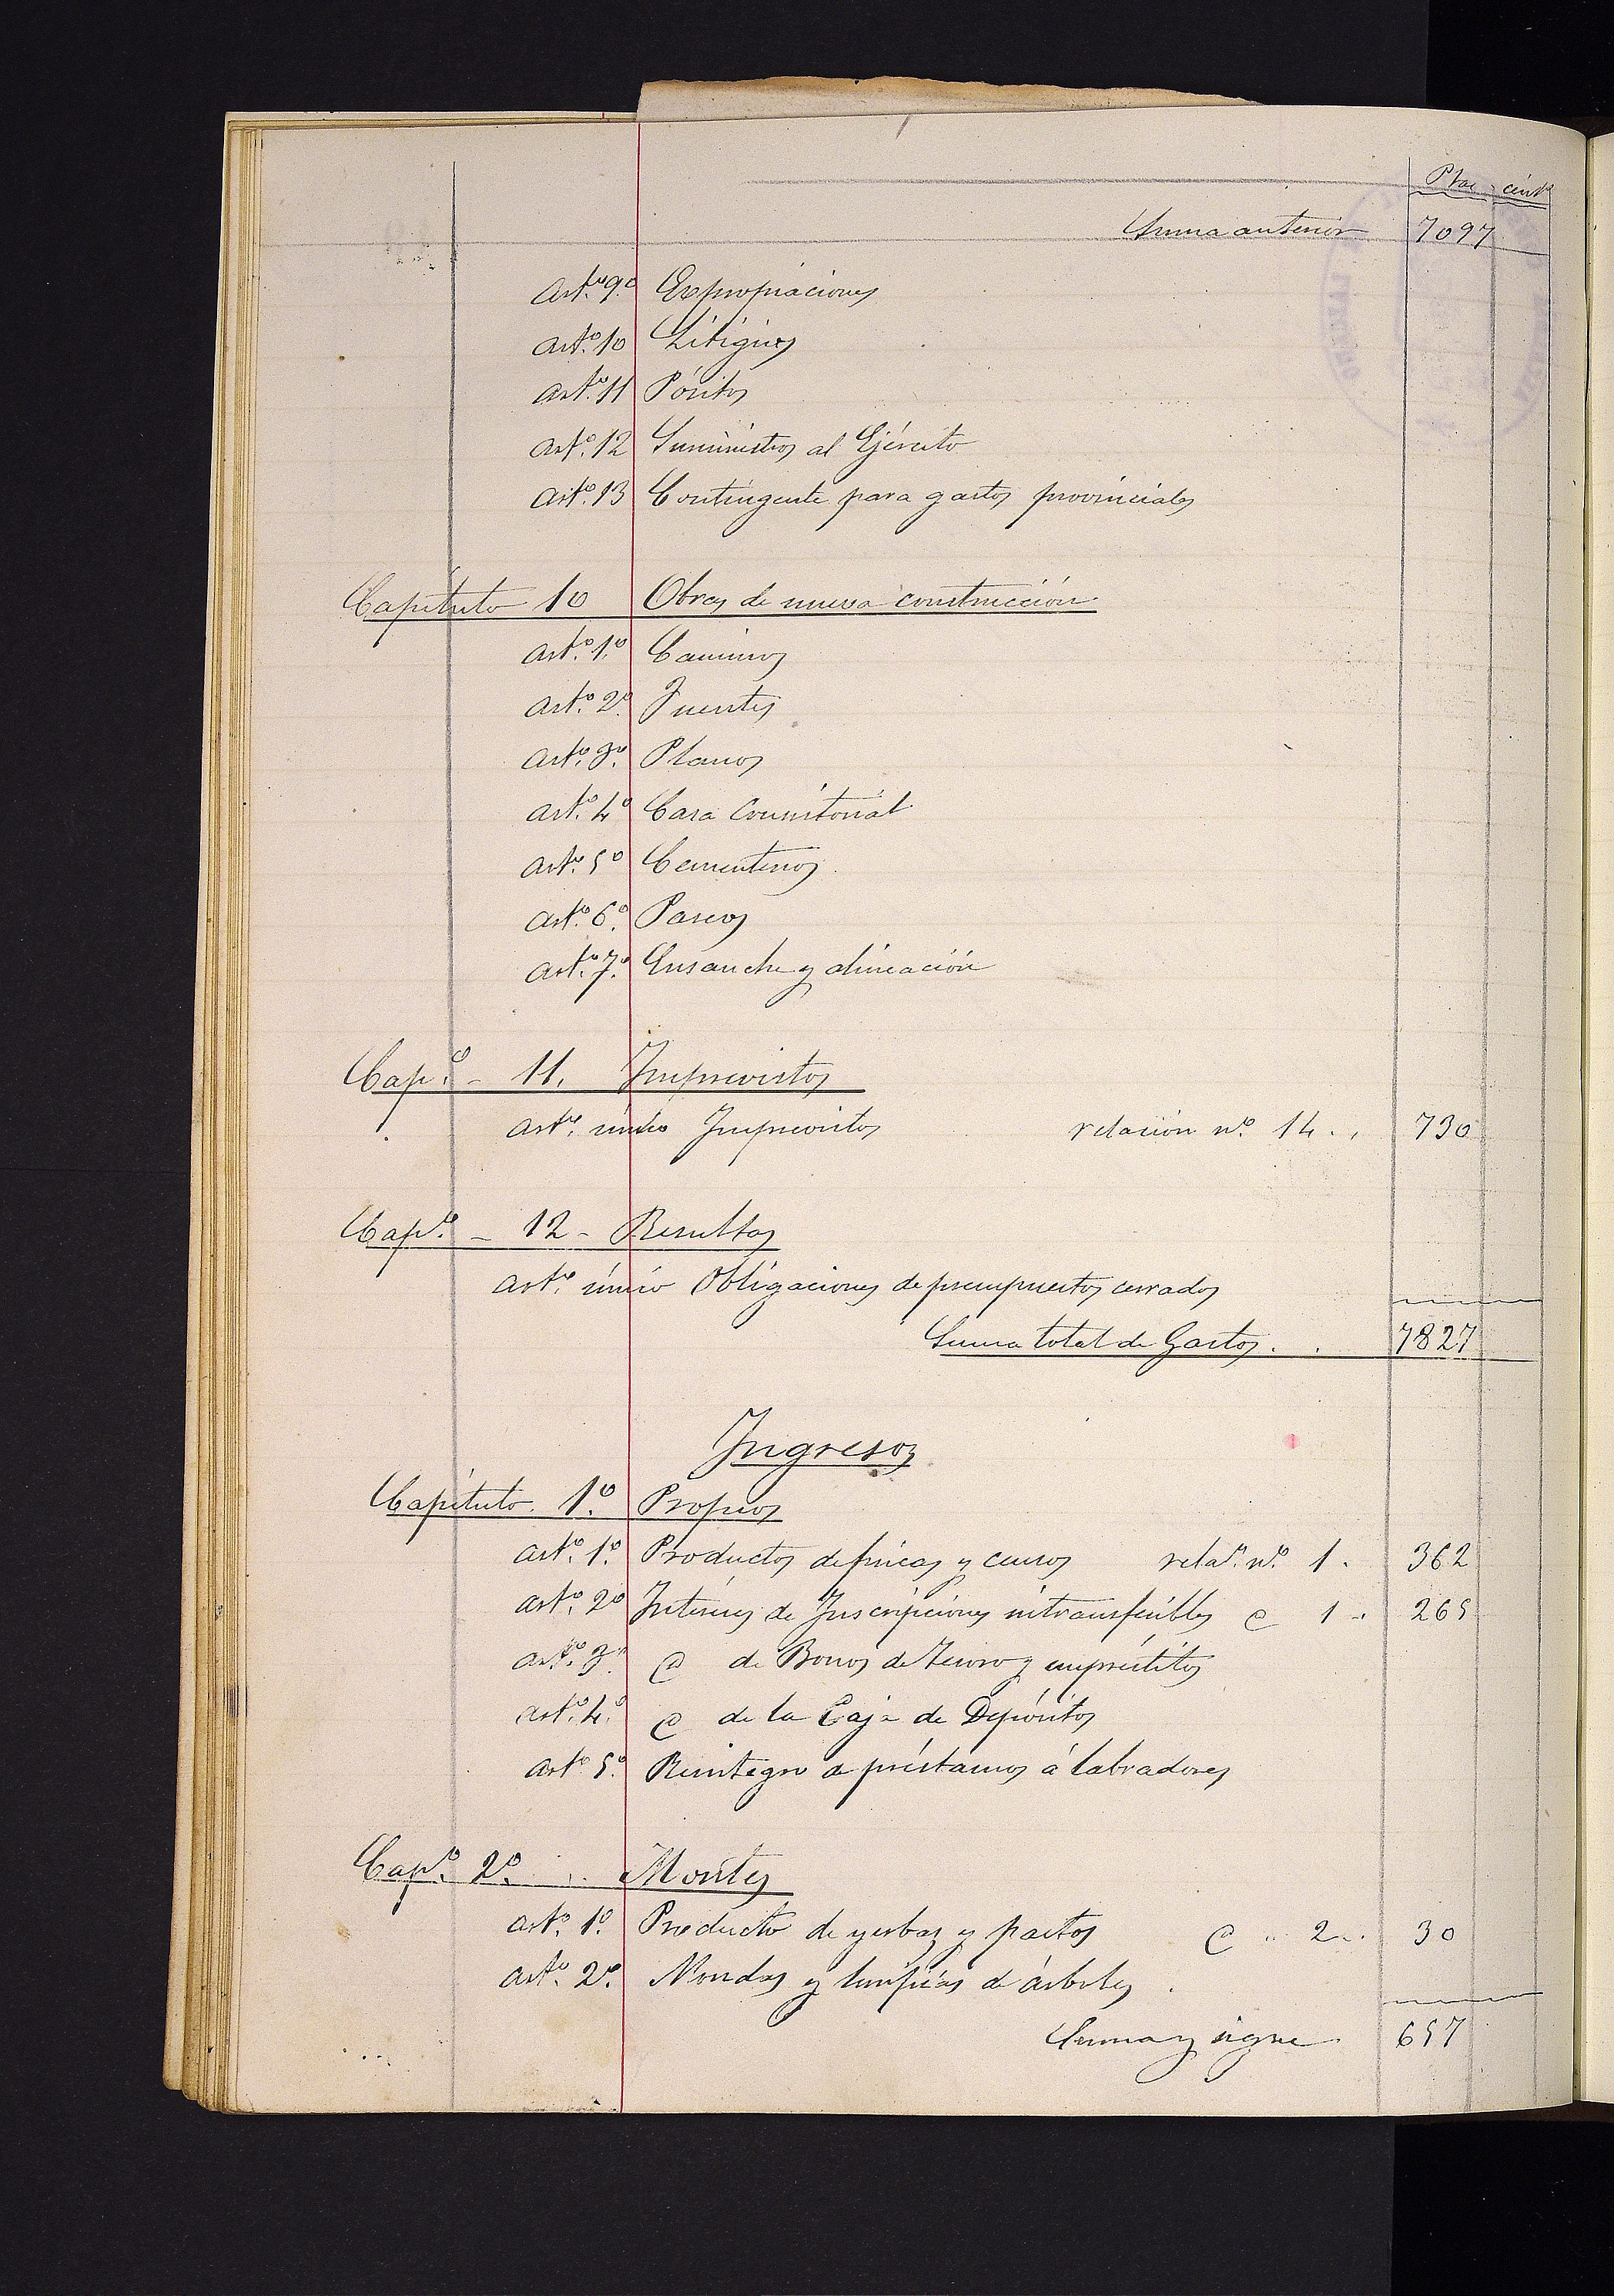 Ptas cénts
Suma anterior 7097
Artº 9º Expropiaciones
Artº 10 Litigios
Artº 11 Pósitos
Artº 12 Suministros al Ejército
Artº 13 Contingente para gastos provinciales
Capítulo 10 Obras de nueva construcción
Artº 1º Caminos
Artº 2º Fuentes
Artº 3º Planos
Artº 4º Casa Consistorial
Artº 5º Cementerios
Artº 6º Paseos
Artº 7º Ensanche y alineación
Capº - 11. Imprevistos
Artº único Imprevistos relación nº 14 . . 730
Capº - 12 - Resultas
Artº único Obligaciones de presupuestos cerrados
Suma total de Gastos . . 7827
Ingresos
Capítulo 1º Propios
Artº 1º Productos de fincas y censos relaⁿ nº 1 . 362
Artº 2º Intereses de Inscripciones intransferibles @ 1 . 265
Artº 3º @ de Bonos de Tesoro y empréstitos
Artº 4º @ de la Caja de Depósitos
Artº 5º Reintegro a préstamos á labradores
Capº 2º . . Montes
Artº 1º Producto de yerbas y pastos @ " 2 . . 30
Artº 2º Mondas y limpias de árboles .
Suma y sigue 657